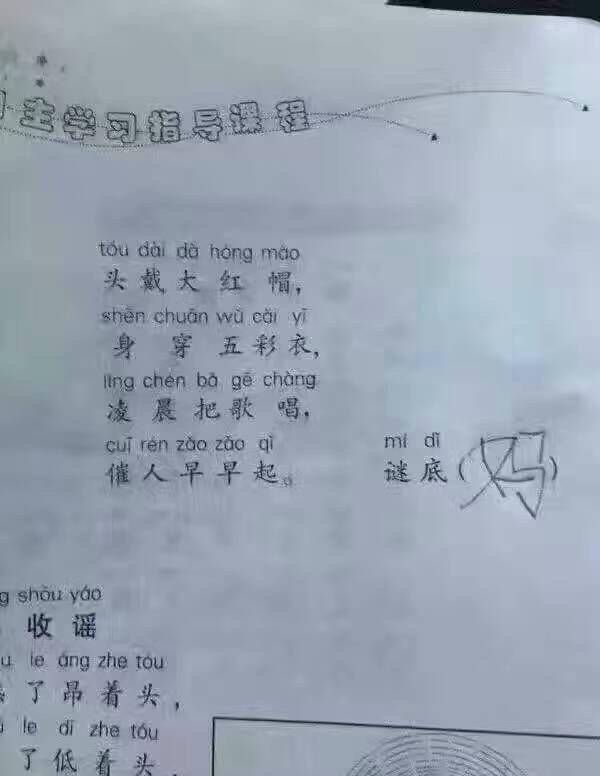 主学习指导课程
tóu dài dà hóng mào
头戴大红帽，
shēn chuān wǔ cǎi yī
身穿五彩衣，
líng chén bǎ gē chàng
凌晨把歌唱，
cuī rén zǎo zǎo qǐ mí dǐ
催人早早起。 谜底（妈）
shōu yáo
收谣
le áng zhe tóu
了昂着头，
le dī zhe tóu
了低着头，